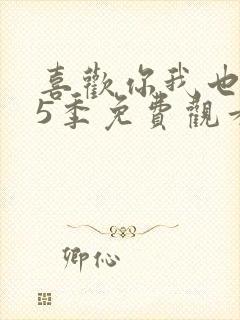 喜歡你我也
5季免費觀看
卿伈